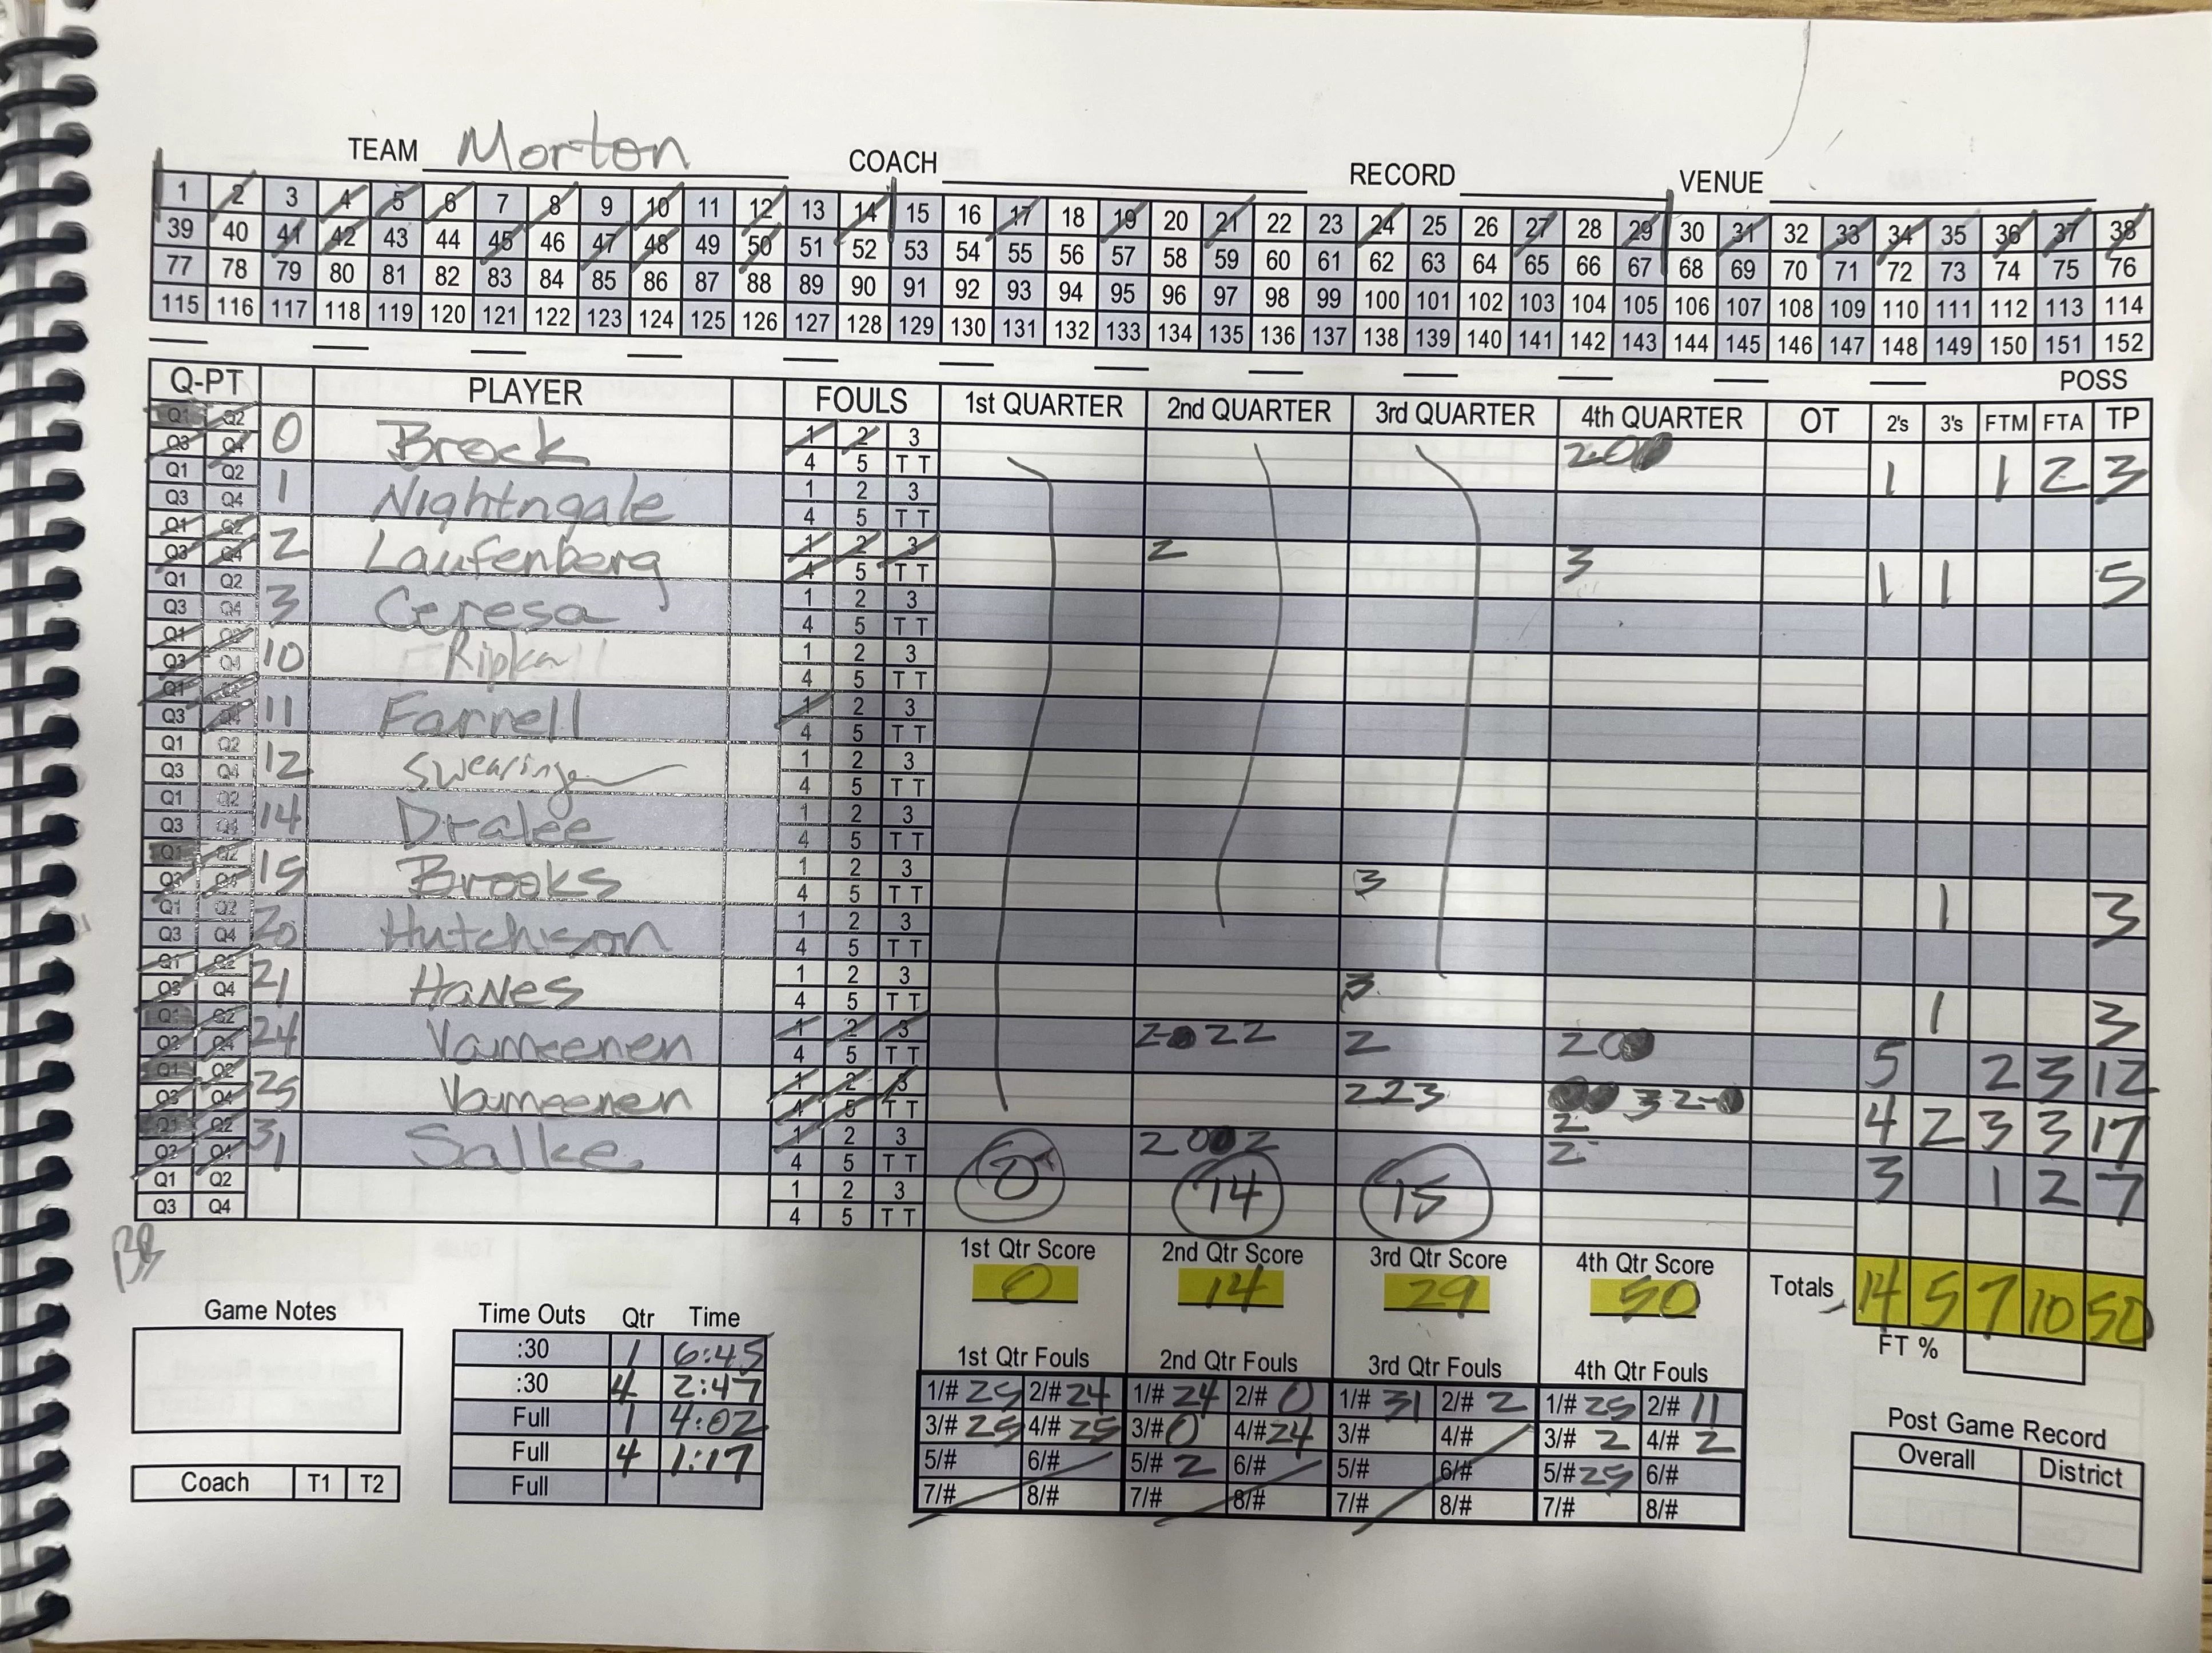 TEAM Morton COACH RECORD VENUE
1 2 3 4 5 6 7 8 9 10 11 12 13 14 15 16 17 18 19 20 21 22 23 24 25 26 27 28 29 30 31 32 33 34 35 36 37 38
39 40 41 42 43 44 45 46 47 48 49 50 51 52 53 54 55 56 57 58 59 60 61 62 63 64 65 66 67 68 69 70 71 72 73 74 75 76
77 78 79 80 81 82 83 84 85 86 87 88 89 90 91 92 93 94 95 96 97 98 99 100 101 102 103 104 105 106 107 108 109 110 111 112 113 114
115 116 117 118 119 120 121 122 123 124 125 126 127 128 129 130 131 132 133 134 135 136 137 138 139 140 141 142 143 144 145 146 147 148 149 150 151 152
POSS
Q-PT PLAYER FOULS 1st QUARTER 2nd QUARTER 3rd QUARTER 4th QUARTER OT 2's 3's FTM FTA TP
Q1 Q2 0 Brock 1 2 3 2 0 1 1 2 3
Q3 Q4 4 5 T T
Q1 Q2 1 Nightngale 1 2 3
Q3 Q4 4 5 T T
Q1 Q2 2 Laufenberg 1 2 3 2 3 1 1 5
Q3 Q4 4 5 T T
Q1 Q2 3 Ceresa 1 2 3
Q3 Q4 4 5 T T
Q1 Q2 10 Ripka 1 2 3
Q3 Q4 4 5 T T
Q1 Q2 11 Farrell 1 2 3
Q3 Q4 4 5 T T
Q1 Q2 12 Swearingen 1 2 3
Q3 Q4 4 5 T T
Q1 Q2 14 1 2 3
Q3 Q4 4 5 T T
Q1 Q2 15 Brooks 1 2 3 3 1 3
Q3 Q4 4 5 T T
Q1 Q2 20 Hutchison 1 2 3
Q3 Q4 4 5 T T
Q1 Q2 21 Hanes 1 2 3 3 1 3
Q3 Q4 4 5 T T
Q1 Q2 24 Vameenen 1 2 3 2 22 2 20 5 2 3 12
Q3 Q4 4 5 T T
Q1 Q2 25 Vameenen 1 2 3 223 3 2 4 2 3 3 17
Q3 Q4 4 5 T T 2
Q1 Q2 31 Salke 1 2 3 20 2 2 3 1 2 7
Q3 Q4 4 5 T T
Q1 Q2 1 2 3 0 14 15
Q3 Q4 4 5 T T
BB
1st Qtr Score 2nd Qtr Score 3rd Qtr Score 4th Qtr Score
0 14 29 50 Totals 14 5 7 10 50
FT %
Game Notes
Time Outs Qtr Time
:30 1 6:45
:30 4 2:47
Full 1 4:02
Full 4 1:17
Full
Coach T1 T2
1st Qtr Fouls 2nd Qtr Fouls 3rd Qtr Fouls 4th Qtr Fouls
1/# 25 2/# 24 1/# 24 2/# 0 1/# 31 2/# 2 1/# 25 2/# 11
3/# 25 4/# 25 3/# 0 4/# 24 3/# 4/# 3/# 2 4/# 2
5/# 6/# 5/# 2 6/# 5/# 6/# 5/# 25 6/#
7/# 8/# 7/# 8/# 7/# 8/# 7/# 8/#
Post Game Record
Overall District